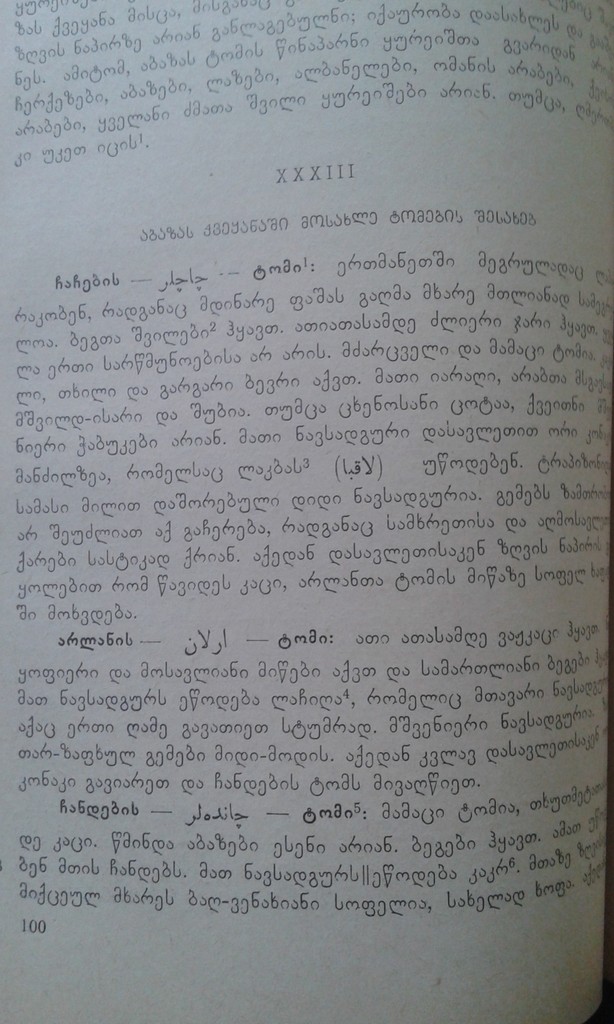 ზას ქვეყანა მისცა,
ზღვის ნაპირზე არიან განლაგებულნი; იქაურობა დაასახლეს და
ნეს. ამიტომ, აბაზას ტომის წინაპარნი ყურეიშთა გვარიდან
ჩერქეზები, აბაზები, ლაზები, ალბანელები, ომანის არაბები,
არაბები, ყველანი ძმათა შვილი ყურეიშები არიან. თუმცა,
კი უკეთ იცის¹.
XXXIII
აბაზას ქვეყანაში მოსახლე ტომების შესახებ
ჩაჩების — چاچلر — ტომი¹: ერთმანეთში მეგრულადაც
რაკობენ, რადგანაც მდინარე ფაშას გაღმა მხარე მთლიანად
ლოა. ბეგთა შვილები² ჰყავთ. ათიათასამდე ძლიერი ჯარი ჰყავთ.
ლა ერთი სარწმუნოებისა არ არის. მძარცველი და მამაცი ტომია.
ლი, თხილი და გარგარი ბევრი აქვთ. მათი იარაღი, არაბთა
მშვილდ-ისარი და შუბია. თუმცა ცხენოსანი ცოტაა, ქვეითნი
ნიერი ჭაბუკები არიან. მათი ნავსადგური დასავლეთით ორი
მანძილზეა, რომელსაც ლაკბას³ (لاقبا) უწოდებენ.
სამასი მილით დაშორებული დიდი ნავსადგურია. გემებს
არ შეუძლიათ აქ გაჩერება, რადგანაც სამხრეთისა და
ქარები სასტიკად ქრიან. აქედან დასავლეთისაკენ ზღვის ნაპირის
ყოლებით რომ წავიდეს კაცი, არლანთა ტომის მიწაზე სოფელ
ში მოხვდება.
არლანის — ارلان — ტომი: ათი ათასამდე ვაჟკაცი ჰყავთ.
ყოფიერი და მოსავლიანი მიწები აქვთ და სამართლიანი ბეგები
მათ ნავსადგურს ეწოდება ლაჩიღა⁴, რომელიც მთავარი
აქაც ერთი ღამე გავათიეთ სტუმრად. მშვენიერი ნავსადგურია.
თარ-ზაფხულ გემები მიდი-მოდის. აქედან კვლავ დასავლეთისაკენ
კონაკი გავიარეთ და ჩანდების ტომს მივაღწიეთ.
ჩანდების — چاندهلر — ტომი⁵: მამაცი ტომია,
დე კაცი. წმინდა აბაზები ესენი არიან. ბეგები ჰყავთ. ამათ
ბენ მთის ჩანდებს. მათ ნავსადგურს||ეწოდება კაკრ⁶. მთაზე
მიქცეულ მხარეს ბაღ-ვენახიანი სოფელია, სახელად ხოფა.
100